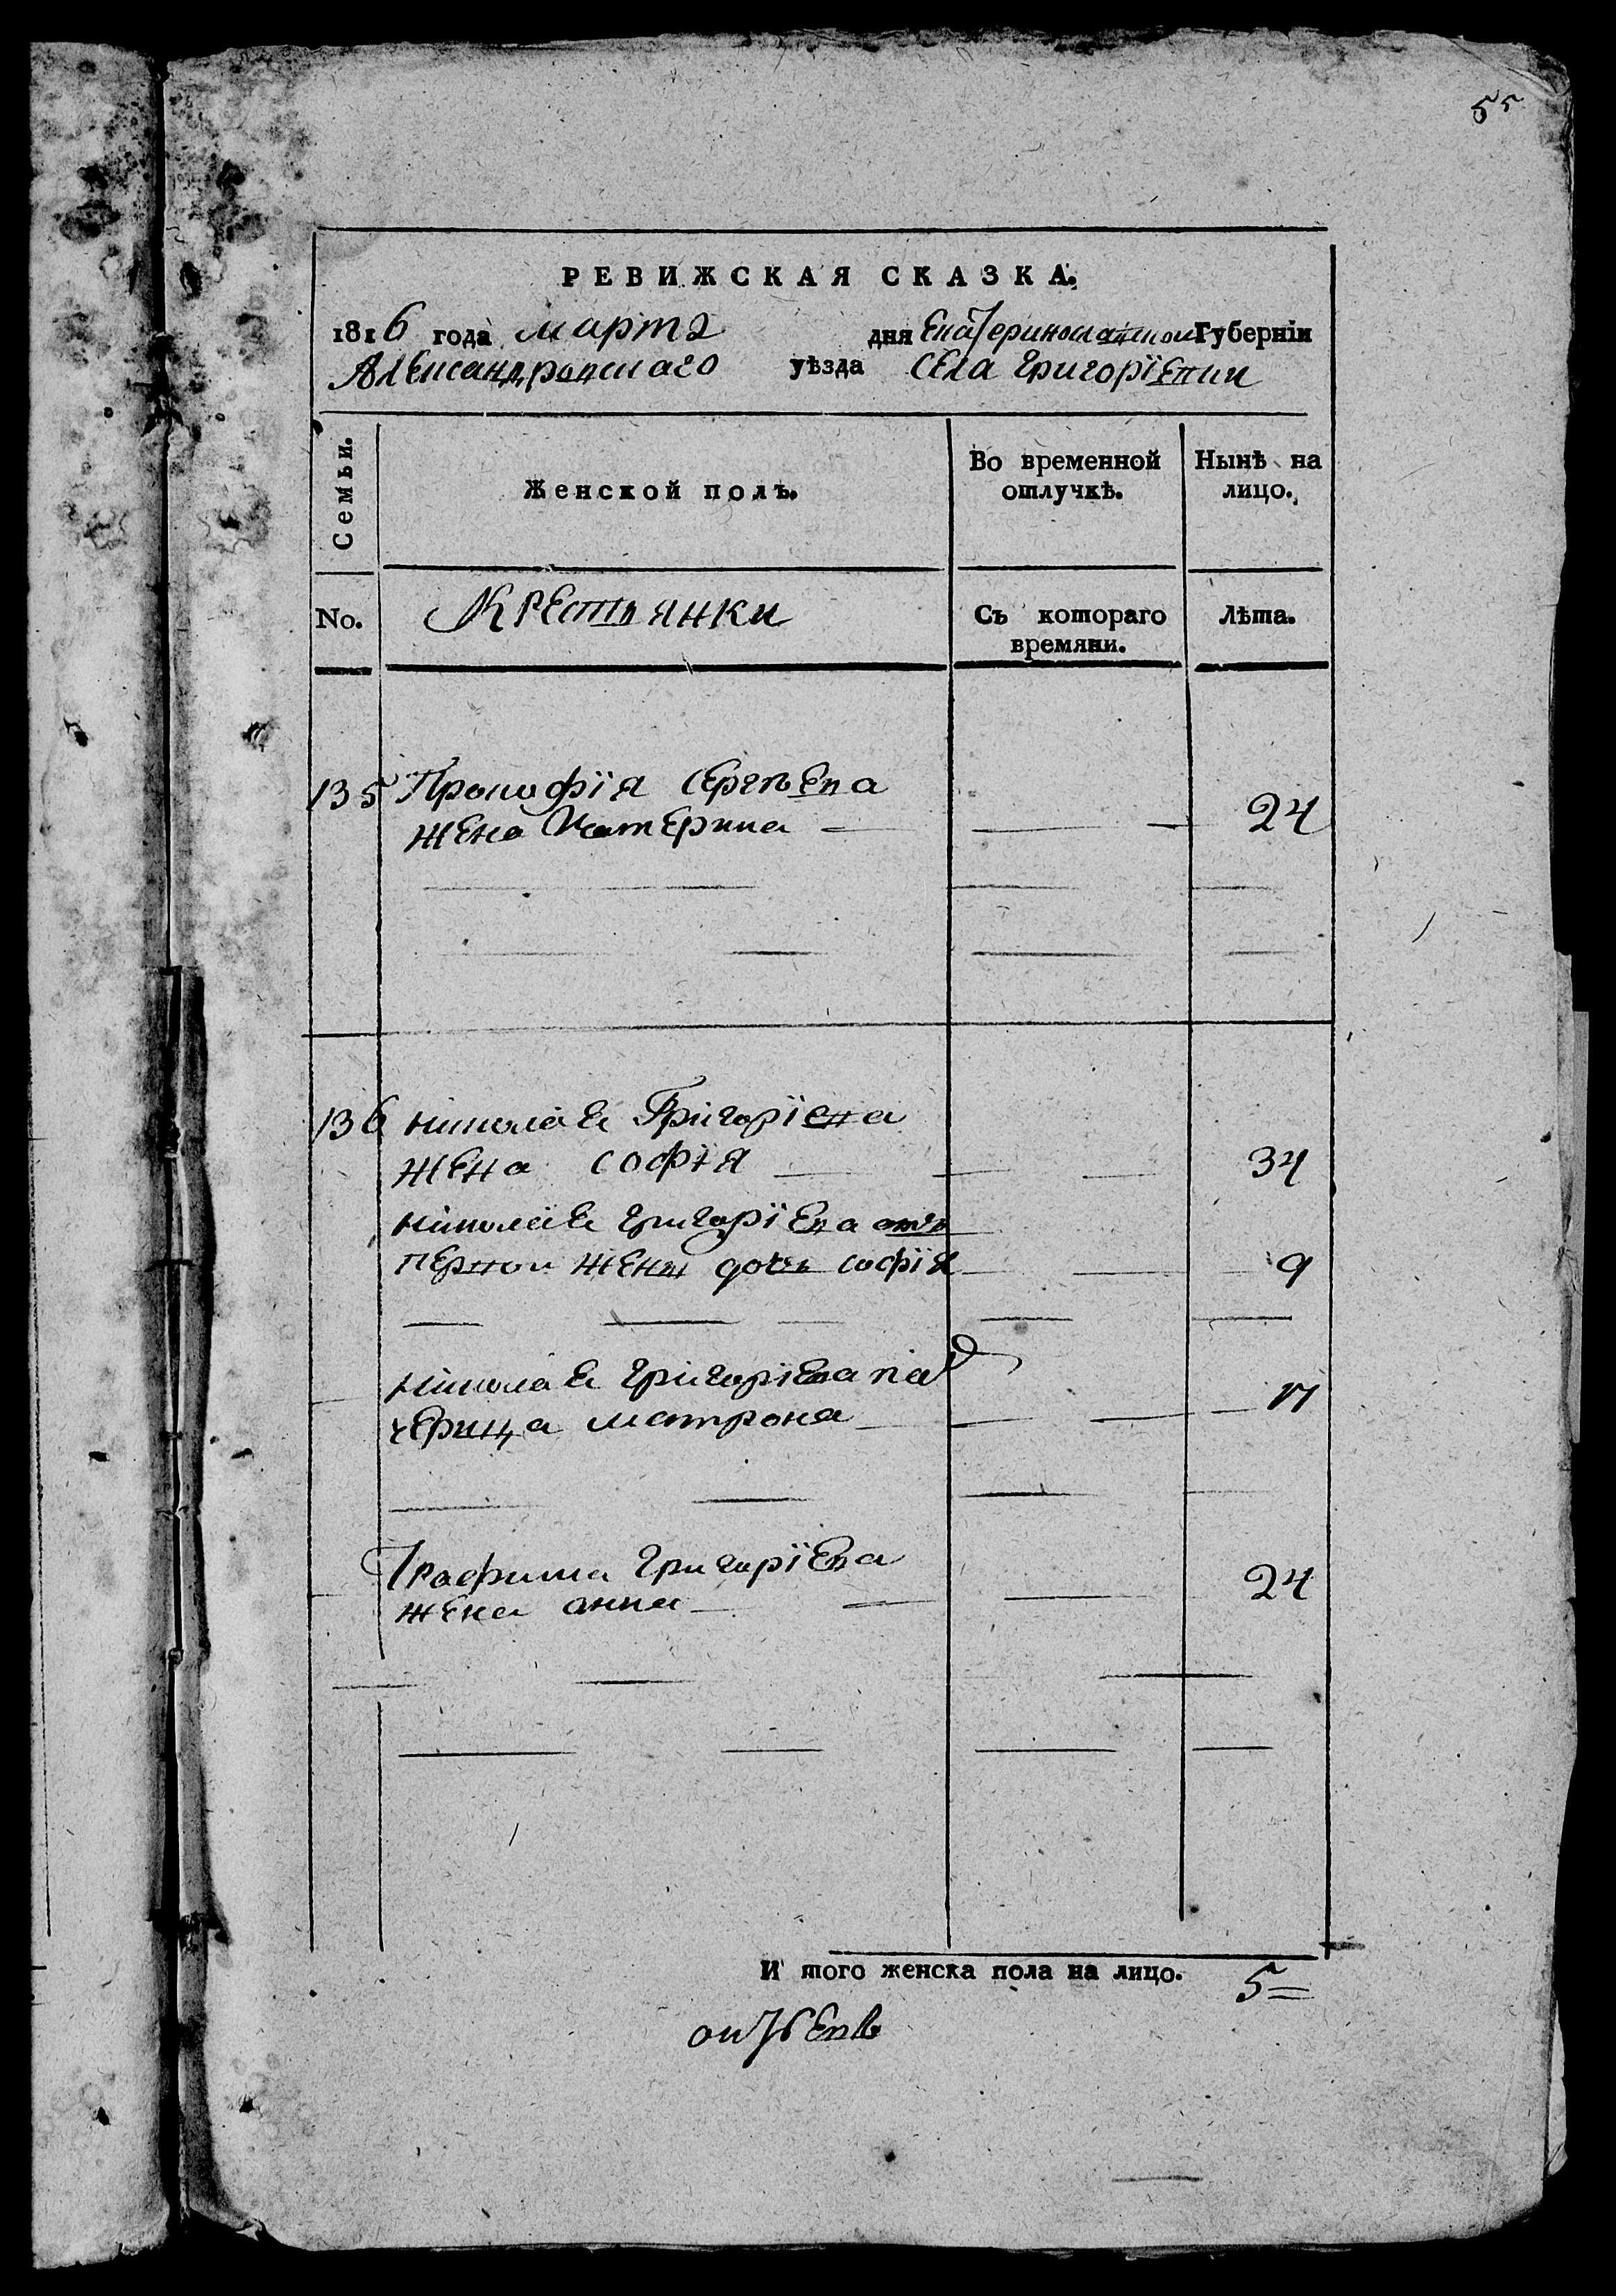 55
РЕВИЖСКАЯ СКАЗКА.
1816 года марта дня Екатеринославской Губерніи
Александровскаго уѣзда села Григоріевки
Семьи. Женской полъ. Во временной отлучкѣ. Нынѣ на лицо.
No. Крестьянки Съ котораго времяни. Лѣта.
135 Прокофія Сергѣева
жена Катерина 24
136 Николаѣ Григоріева
жена Софія 34
Николаѣ Григоріева отъ
первой жены дочь Софія 9
Николаѣ Григоріева пад
черица Матрона 17
Трофима Григоріева
жена Анна 24
И того женска пола на лицо. 5